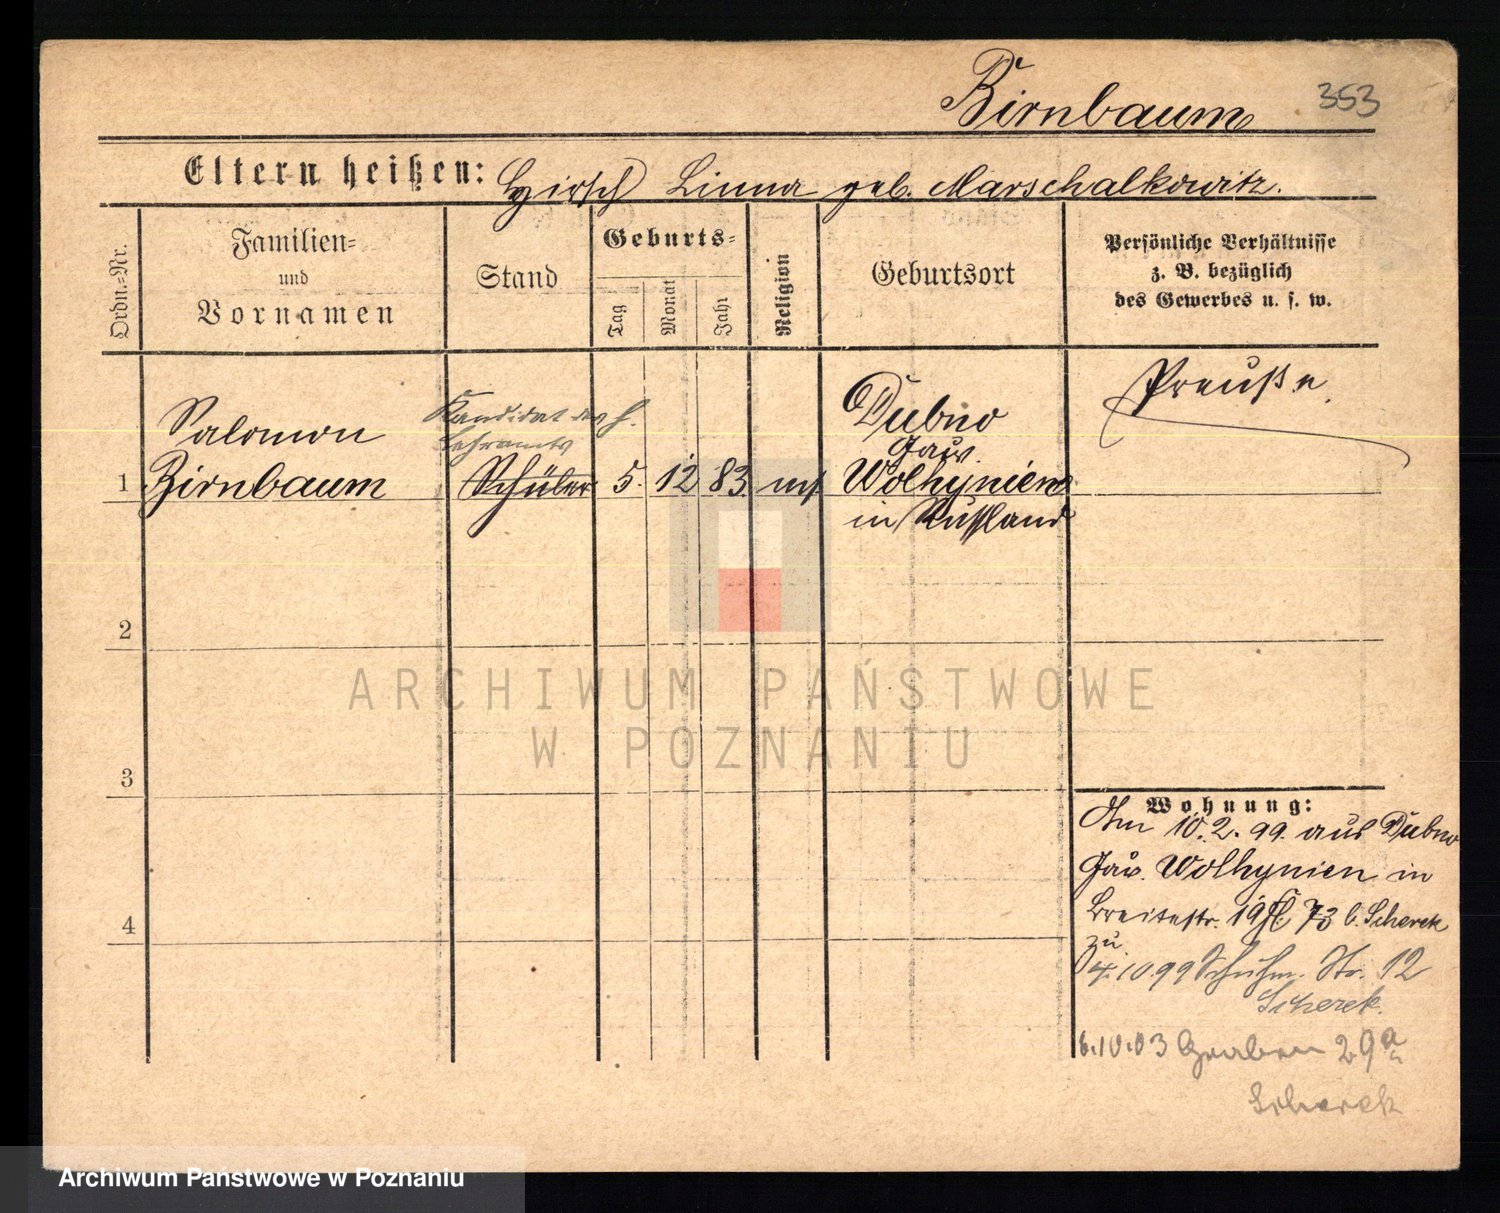 Birnbaum 353
Eltern heißen: Hirsch Linna geb. Marschalkowitz.
Ordn.=Nr.
Familien=
und
Vornamen
Stand
Geburts=
Tag
Monat
Jahr
Religion
Geburtsort
Persönliche Verhältnisse
z. B. bezüglich
des Gewerbes u. s. w.
Preuße.
Kandidat des h.
Lehramts
Salomon
Dubno
Gouv.
1 Birnbaum Schüler 5. 12 83 mos Wolhynien
in Russland
2
3
4
Wohnung:
Am 10.2.99. aus Dubno
Gouv. Wolhynien in
Breitestr. 19 73 b. Scherek
zu
4.10.99 Schuhm. Str. 12
Scherek.
6.10.03 Graben 29a
Scherek
ARCHIWUM PAŃSTWOWE
W POZNANIU
Archiwum Państwowe w Poznaniu